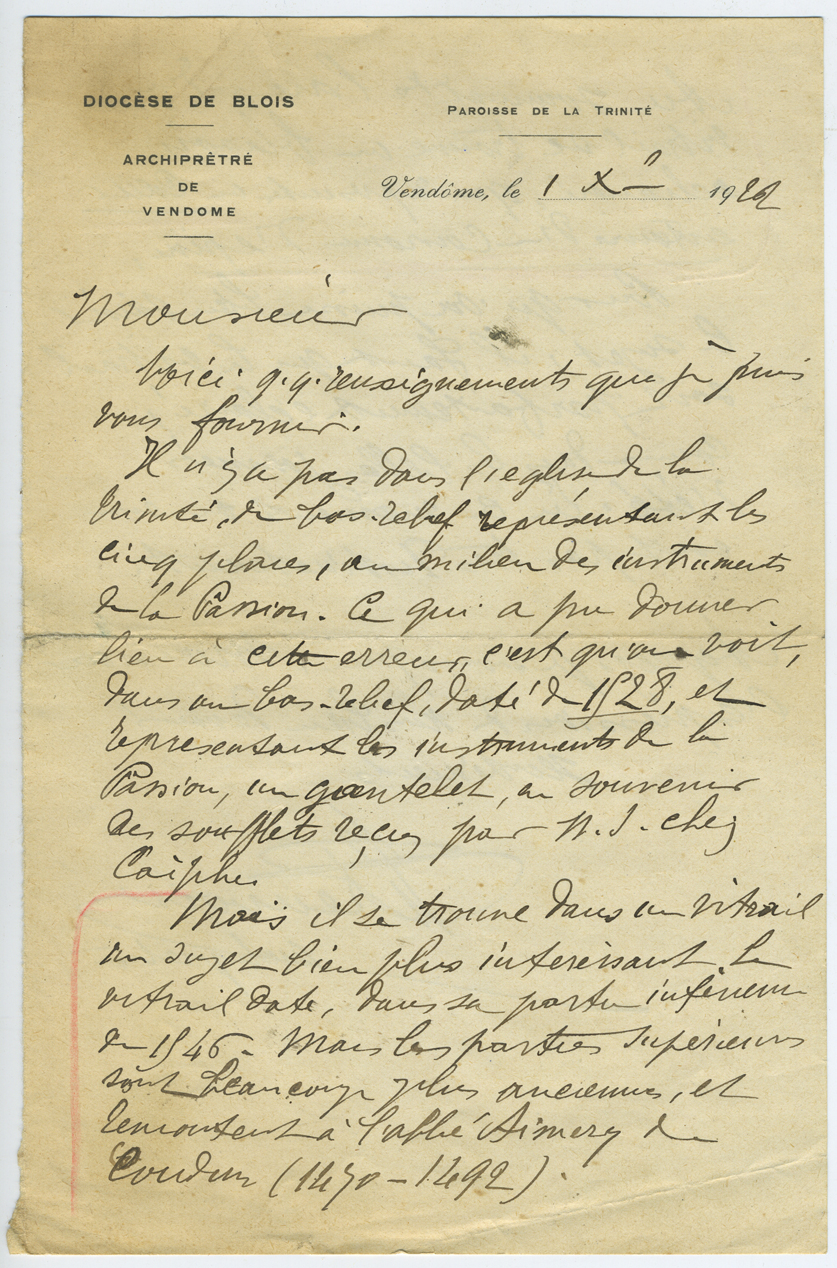 DIOCÈSE DE BLOIS
ARCHIPRÊTRÉ
DE
VENDOME
PAROISSE DE LA TRINITÉ
Vendôme, le 1 Xr 1922
Monsieur
Voici q.q. renseignements que je puis
vous fournir.
Il n'y a pas dans l'eglise de la
Trinité, de bas-relief représentant les
cinq plaies, au milieu des instruments
de la Passion. Ce qui a pu donner
lieu à cette erreur, c'est qu'on voit,
dans un bas-relief, daté de 1528, et
représentant les instruments de la
Passion, un gantelet, en souvenir
des soufflets reçus par N. S. chez
Caïphe.
Mais il se trouve dans un vitrail
un sujet bien plus intéressant. Le
vitrail date, dans sa partie inférieure
de 1546. Mais les parties supérieures
sont beaucoup plus anciennes, et
remontent à l'abbé Aimery de
Coudun (1470-1492).